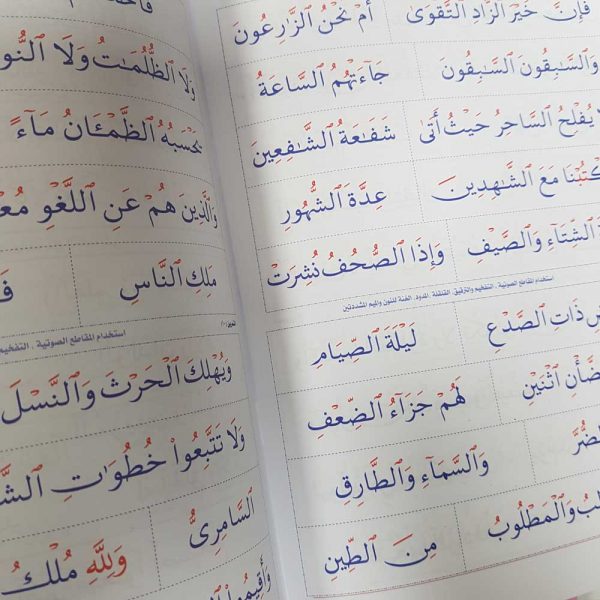 فَإِنَّ خَيْرَ ٱلزَّادِ ٱلتَّقْوَىٰ أَمْ نَحْنُ ٱلزَّٰرِعُونَ
وَٱلسَّٰبِقُونَ ٱلسَّٰبِقُونَ جَآءَتْهُمُ ٱلسَّاعَةُ
يُفْلِحُ ٱلسَّاحِرُ حَيْثُ أَتَىٰ شَفَٰعَةُ ٱلشَّٰفِعِينَ
مَعَ ٱلشَّٰهِدِينَ عِدَّةَ ٱلشُّهُورِ
ٱلشِّتَآءِ وَٱلصَّيْفِ وَإِذَا ٱلصُّحُفُ نُشِرَتْ
استخدام المقاطع الصوتية . التفخيم والترقيق . القلقلة . المدود . الغنة للنون والميم المشددتين
ذَاتِ ٱلصَّدْعِ لَيْلَةَ ٱلصِّيَامِ
ٱلضَّأْنِ ٱثْنَيْنِ لَهُمْ جَزَآءُ ٱلضِّعْفِ
ٱلضُّرُّ وَٱلسَّمَآءِ وَٱلطَّارِقِ
وَٱلْمَطْلُوبُ مِنَ ٱلطِّينِ
وَلَا ٱلظُّلُمَٰتُ وَلَا ٱلنُّو
يَحْسَبُهُ ٱلظَّمْـَٔانُ مَآءً
وَٱلَّذِينَ هُمْ عَنِ ٱللَّغْوِ
مَلِكِ ٱلنَّاسِ
استخدام المقاطع الصوتية . التفخيم
وَيُهْلِكَ ٱلْحَرْثَ وَٱلنَّسْلَ
وَلَا تَتَّبِعُوا۟ خُطُوَٰتِ ٱلشَّ
ٱلسَّامِرِىُّ
وَلِلَّهِ مُلْكُ